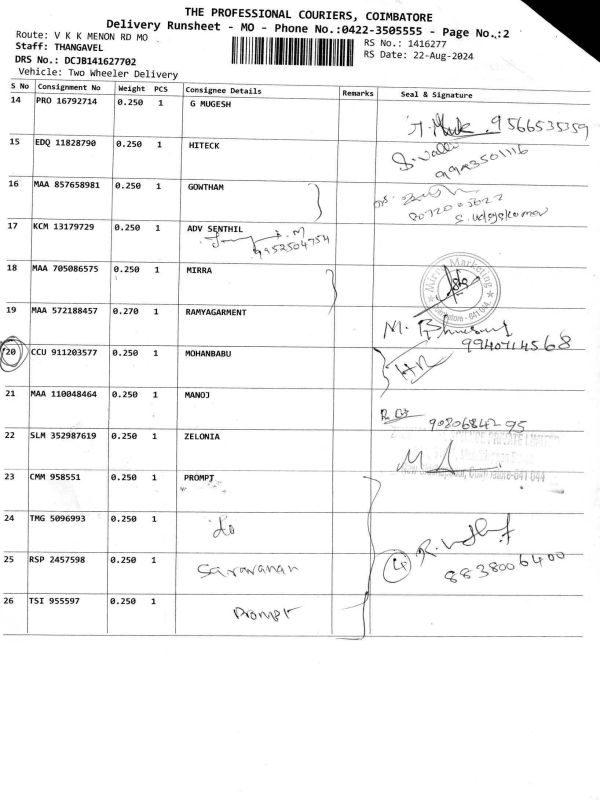 THE PROFESSIONAL COURIERS, COIMBATORE
Delivery Runsheet - MO - Phone No.:0422-3505555 - Page No.:2
Route: V K K MENON RD MO
RS No.: 1416277
Staff: THANGAVEL
RS Date: 22-Aug-2024
DRS No.: DCJB141627702
Vehicle: Two Wheeler Delivery
S No Consignment No Weight PCS Consignee Details Remarks Seal & Signature
14 PRO 16792714 0.250 1 G MUGESH
9566535359
15 EDQ 11828790 0.250 1 HITECK
16 MAA 857658981 0.250 1 GOWTHAM
S. Udayakumar
17 KCM 13179729 0.250 1 ADV SENTHIL
9952504754
18 MAA 705086575 0.250 1 MIRRA
19 MAA 572188457 0.270 1 RAMYAGARMENT
9940714568
20 CCU 911203577 0.250 1 MOHANBABU
21 MAA 110048464 0.250 1 MANOJ
9080684295
22 SLM 352987619 0.250 1 ZELONIA
23 CMM 958551 0.250 1 PROMPT
24 TMG 5096993 0.250 1
25 RSP 2457598 0.250 1 Saravanan
8838006400
26 TSI 955597 0.250 1 Prompt